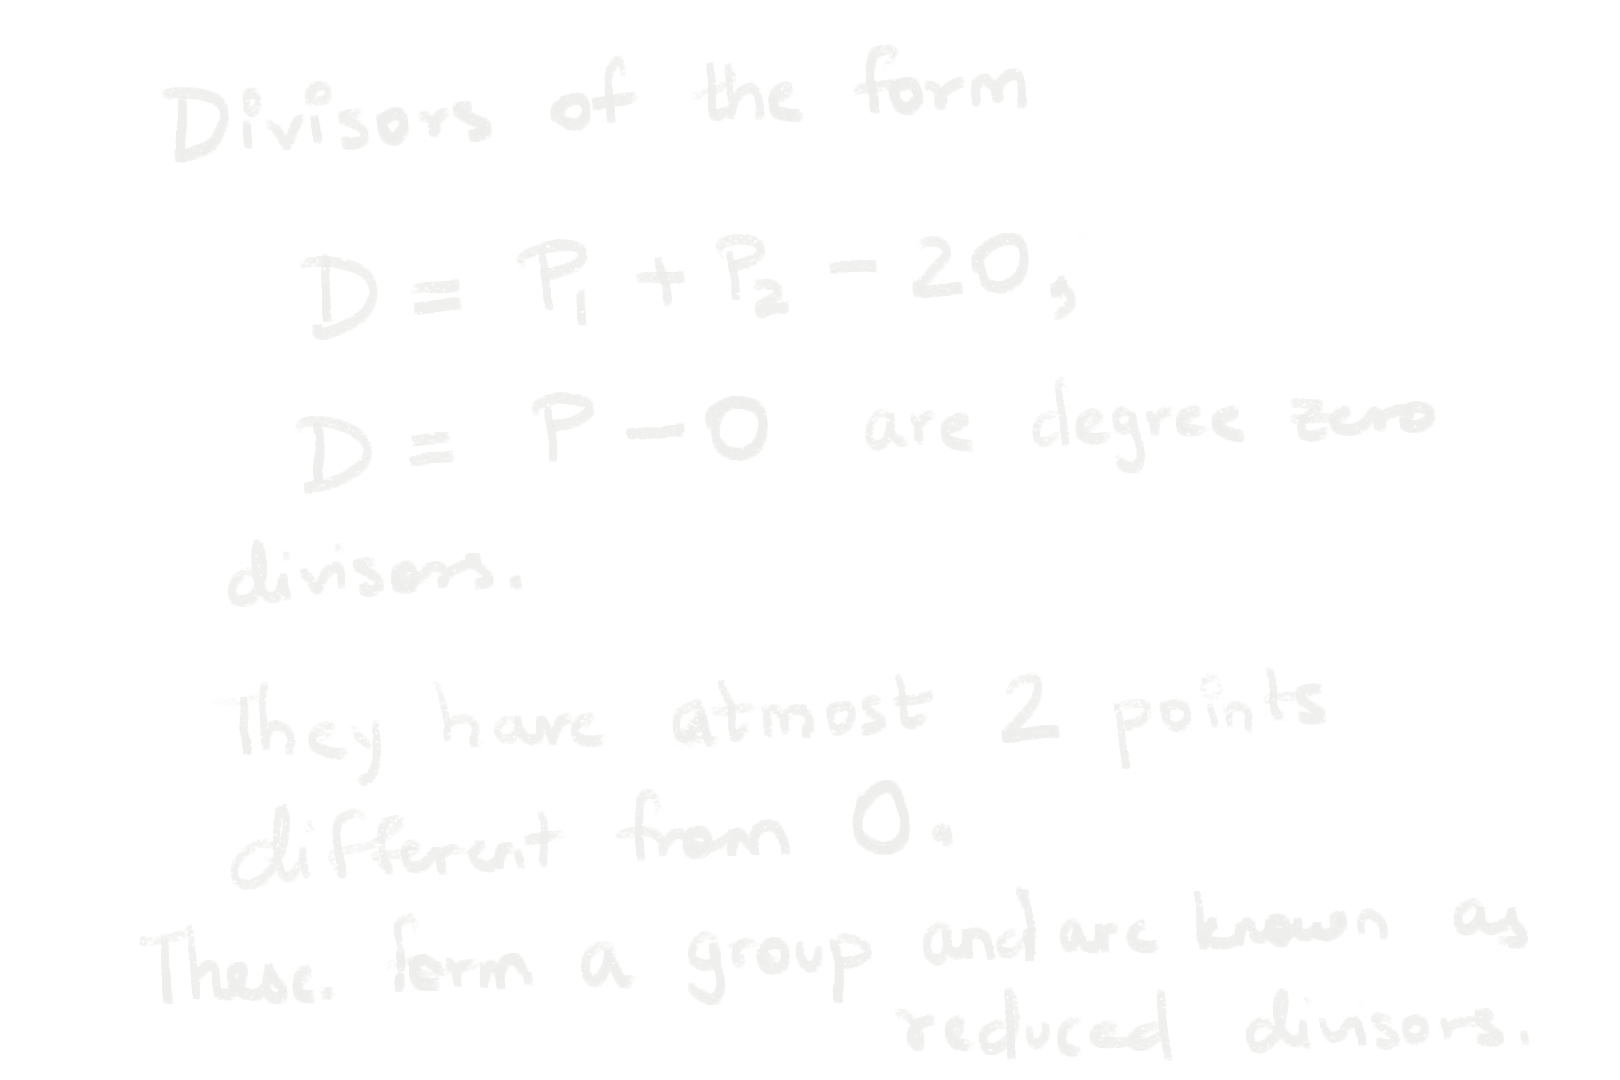 Divisors of the form
D = P₁ + P₂ - 2O,
D = P - O are degree zero
divisors.
They have atmost 2 points
different from O.
These form a group and are known as
reduced divisors.